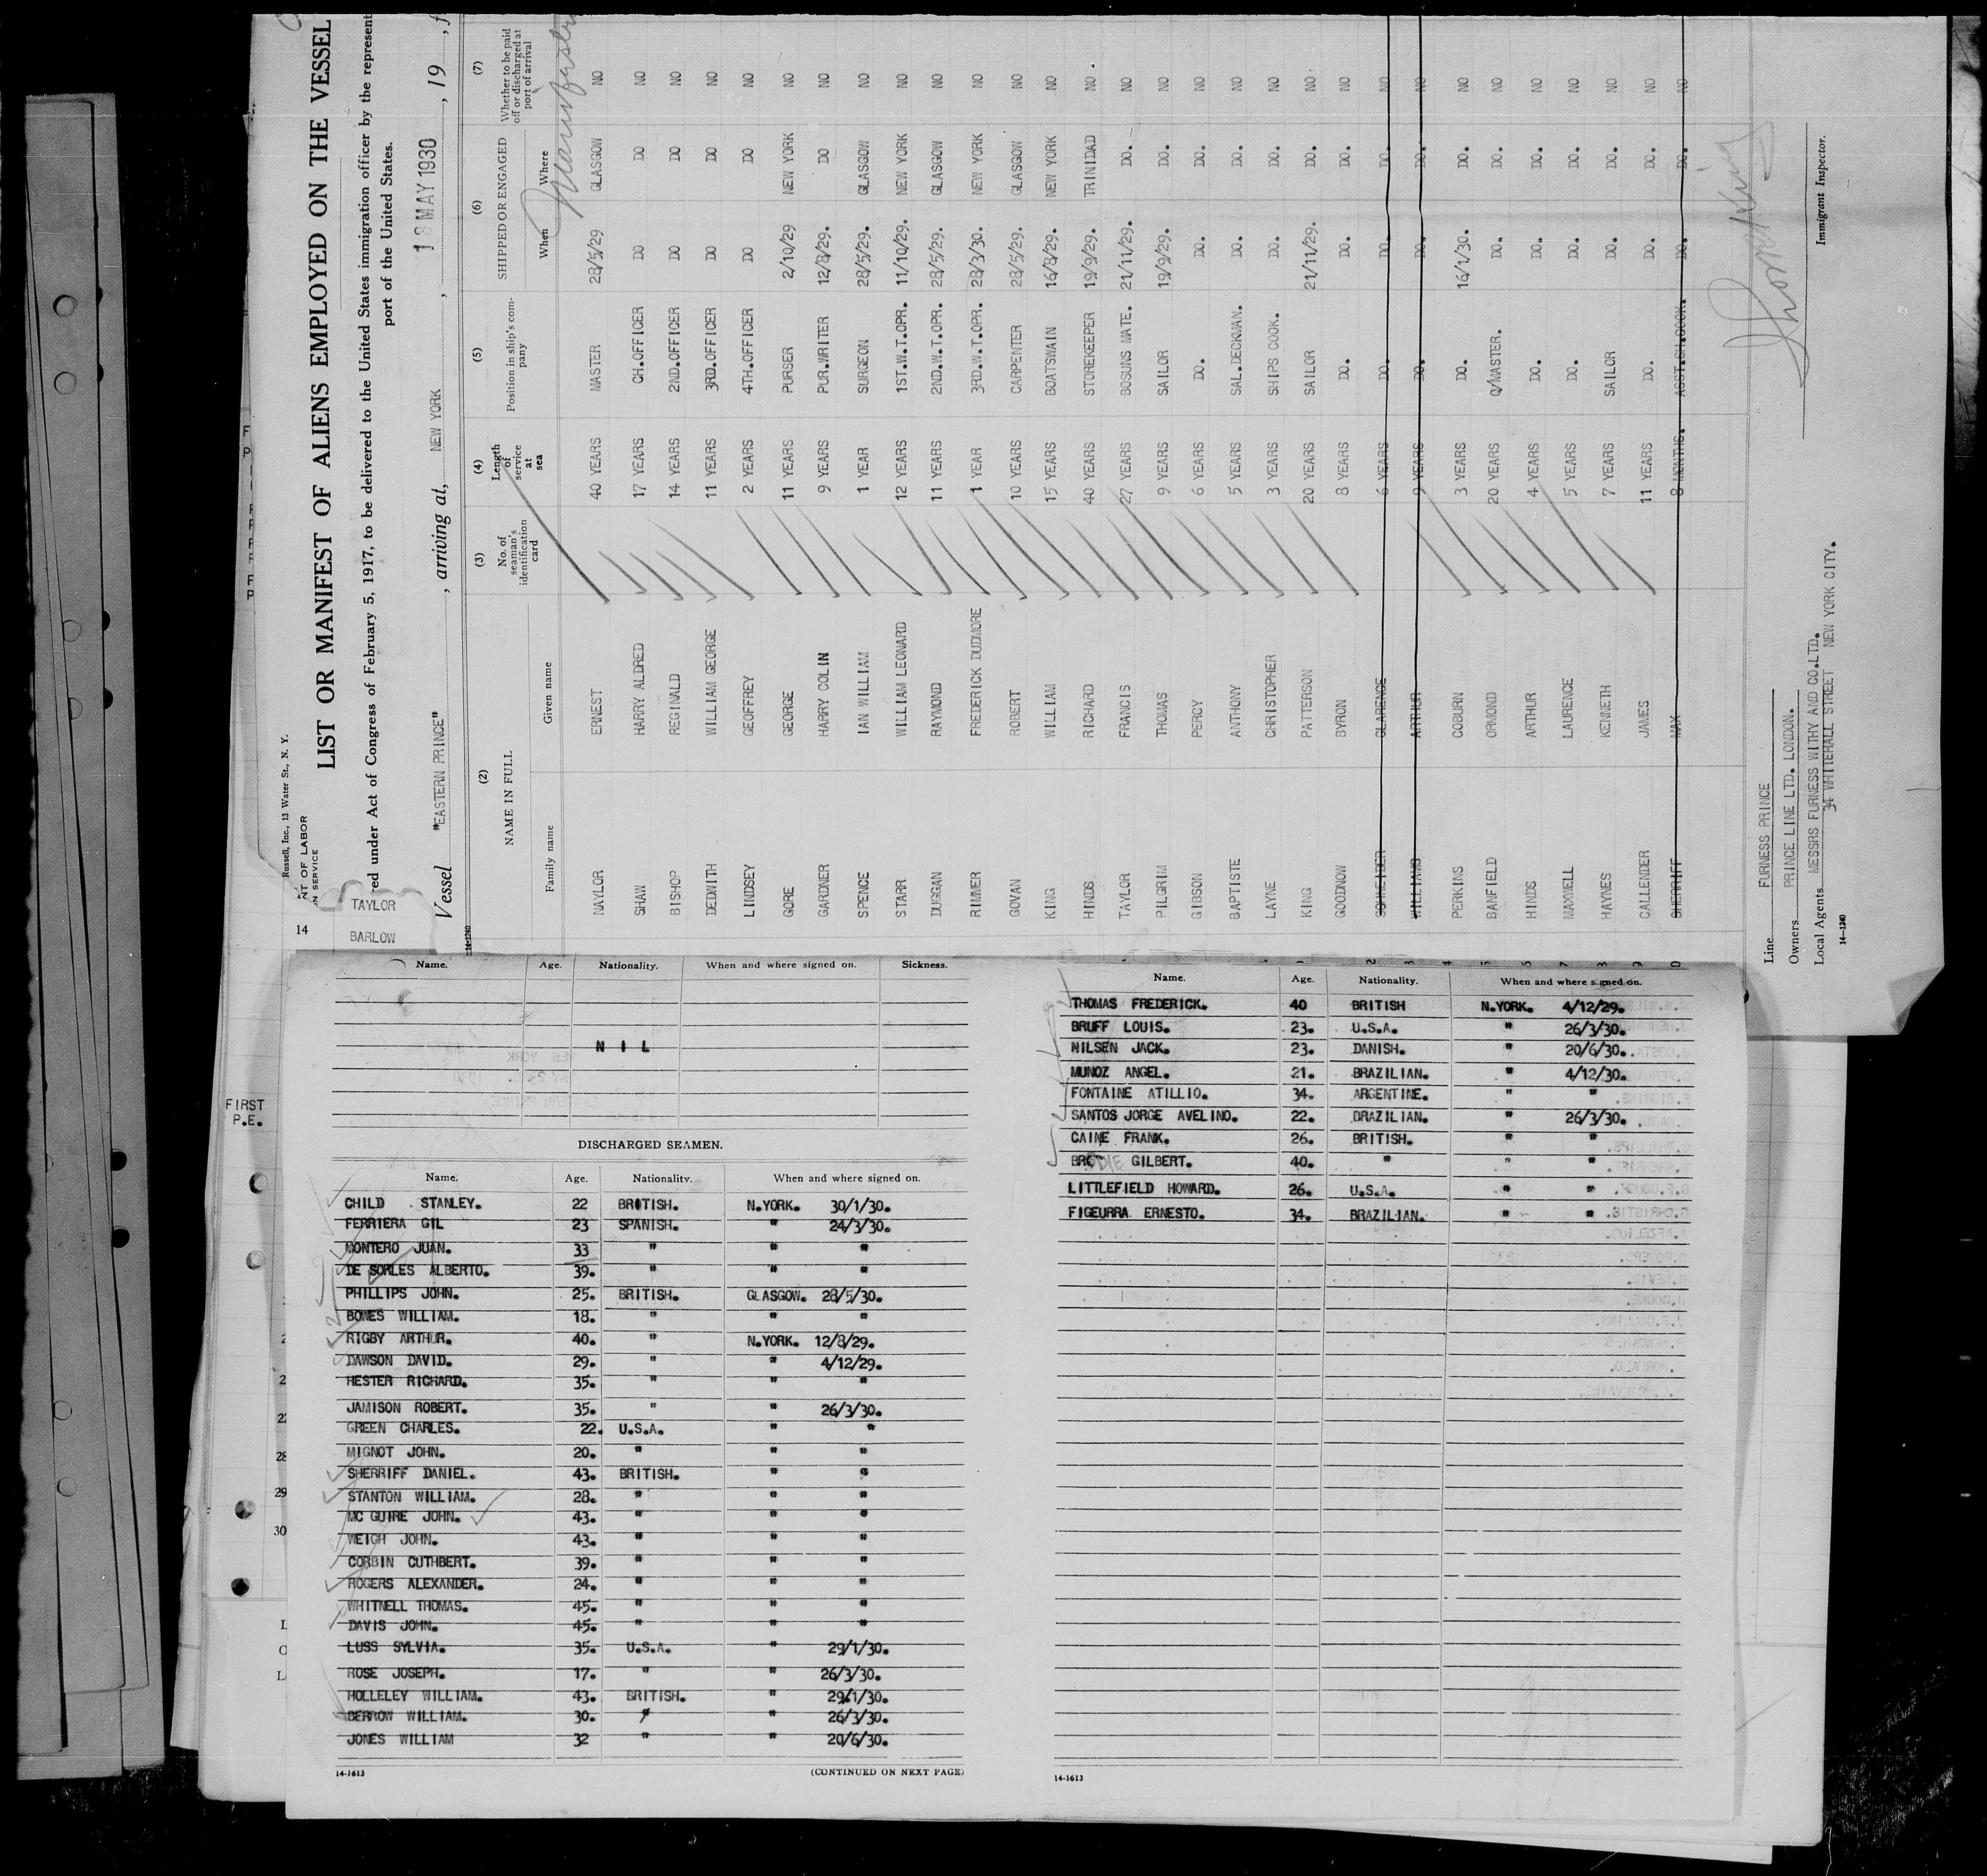 Russell, Inc., 13 Water St., N. Y.
NT OF LABOR
N SERVICE
LIST OR MANIFEST OF ALIENS EMPLOYED ON THE VESSEL
red under Act of Congress of February 5, 1917, to be delivered to the United States immigration officer by the represent
port of the United States.
Vessel "EASTERN PRINCE" , arriving at, NEW YORK , 18 MAY 1930 , 19 , f
14
TAYLOR
BARLOW
14-1240
(2) (3) (4) (5) (6) (7)
NAME IN FULL No. of seaman's identification card Length of service at sea Position in ship's company SHIPPED OR ENGAGED Whether to be paid off or discharged at port of arrival
Family name Given name When Where
NAYLOR ERNEST 40 YEARS MASTER 28/5/29 GLASGOW NO
SHAW HARRY ALDRED 17 YEARS CH.OFFICER DO DO NO
BISHOP REGINALD 14 YEARS 2ND.OFFICER DO DO NO
DEDWITH WILLIAM GEORGE 11 YEARS 3RD.OFFICER DO DO NO
LINDSEY GEOFFREY 2 YEARS 4TH.OFFICER DO DO NO
GORE GEORGE 11 YEARS PURSER 2/10/29 NEW YORK NO
GARDNER HARRY COLIN 9 YEARS PUR.WRITER 12/8/29. DO NO
SPENCE IAN WILLIAM 1 YEAR SURGEON 28/5/29. GLASGOW NO
STARR WILLIAM LEONARD 12 YEARS 1ST.W.T.OPR. 11/10/29. NEW YORK NO
DUGGAN RAYMOND 11 YEARS 2ND.W.T.OPR. 28/5/29. GLASGOW NO
RIMMER FREDERICK DUDMORE 1 YEAR 3RD.W.T.OPR. 28/3/30. NEW YORK NO
GOVAN ROBERT 10 YEARS CARPENTER 28/5/29. GLASGOW NO
KING WILLIAM 15 YEARS BOATSWAIN 16/8/29. NEW YORK NO
HINDS RICHARD 40 YEARS STOREKEEPER 19/9/29. TRINIDAD NO
TAYLOR FRANCIS 27 YEARS BOSUNS MATE. 21/11/29. DO. NO
PILGRIM THOMAS 9 YEARS SAILOR 19/9/29. DO. NO
GIBSON PERCY 6 YEARS DO. DO. DO. NO
BAPTISTE ANTHONY 5 YEARS SAL.DECKMAN. DO. DO. NO
LAYNE CHRISTOPHER 3 YEARS SHIPS COOK. DO. DO. NO
KING PATTERSON 20 YEARS SAILOR 21/11/29. DO. NO
GOODNOW BYRON 8 YEARS DO. DO. DO. NO
SCHNEIDER CLARENCE 6 YEARS DO. DO. DO. NO
WILLIAMS ARTHUR 9 YEARS DO. DO. DO. NO
PERKINS COBURN 3 YEARS DO. 16/1/30. DO. NO
BANFIELD ORMOND 20 YEARS Q/MASTER. DO. DO. NO
HINDS ARTHUR 4 YEARS DO. DO. DO. NO
MAXWELL LAURENCE 5 YEARS DO. DO. DO. NO
HAYNES KENNETH 7 YEARS SAILOR DO. DO. NO
CALLENDER JAMES 11 YEARS DO. DO. DO. NO
SHERRIFF MAX 8 MONTHS. ASST.SH.COOK. DO. DO. NO
Line FURNESS PRINCE
Owners PRINCE LINE LTD. LONDON.
Local Agents MESSRS FURNESS WITHY AND CO.LTD.
34 WHITEHALL STREET NEW YORK CITY.
Immigrant Inspector.
14-1240
FIRST
P.E.
28
29
30
Name. Age. Nationality. When and where signed on. Sickness.
N I L
DISCHARGED SEAMEN.
Name. Age. Nationality. When and where signed on.
CHILD STANLEY. 22 BRITISH. N.YORK. 30/1/30.
FERRIERA GIL 23 SPANISH. " 24/3/30.
MONTERO JUAN. 33 " " "
DE SORLES ALBERTO. 39. " " "
PHILLIPS JOHN. 25. BRITISH. GLASGOW. 28/5/30.
BONES WILLIAM. 18. " " "
RIGBY ARTHUR. 40. " N.YORK. 12/8/29.
DAWSON DAVID. 29. " " 4/12/29.
HESTER RICHARD. 35. " " "
JAMISON ROBERT. 35. " " 26/3/30.
GREEN CHARLES. 22. U.S.A. " "
MIGNOT JOHN. 20. " " "
SHERRIFF DANIEL. 43. BRITISH. " "
STANTON WILLIAM. 28. " " "
MC GUIRE JOHN. 43. " " "
WEIGH JOHN. 43. " " "
CORBIN CUTHBERT. 39. " " "
ROGERS ALEXANDER. 24. " " "
WHITNELL THOMAS. 45. " " "
DAVIS JOHN. 45. " " "
LUSS SYLVIA. 35. U.S.A. " 29/1/30.
ROSE JOSEPH. 17. " " 26/3/30.
HOLLELEY WILLIAM. 43. BRITISH. " 29/1/30.
BERROW WILLIAM. 30. " " 26/3/30.
JONES WILLIAM 32 " " 20/6/30.
14-1613 (CONTINUED ON NEXT PAGE)
Name. Age. Nationality. When and where signed on.
THOMAS FREDERICK. 40 BRITISH N.YORK. 4/12/29.
BRUFF LOUIS. 23. U.S.A. " 26/3/30.
NILSEN JACK. 23. DANISH. " 20/6/30.
MUNOZ ANGEL. 21. BRAZILIAN. " 4/12/30.
FONTAINE ATILLIO. 34. ARGENTINE. " "
SANTOS JORGE AVELINO. 22. BRAZILIAN. " 26/3/30.
CAINE FRANK. 26. BRITISH. " "
BRODIE GILBERT. 40. " " "
LITTLEFIELD HOWARD. 26. U.S.A. " "
FIGEURRA ERNESTO. 34. BRAZILIAN. " "
14-1613